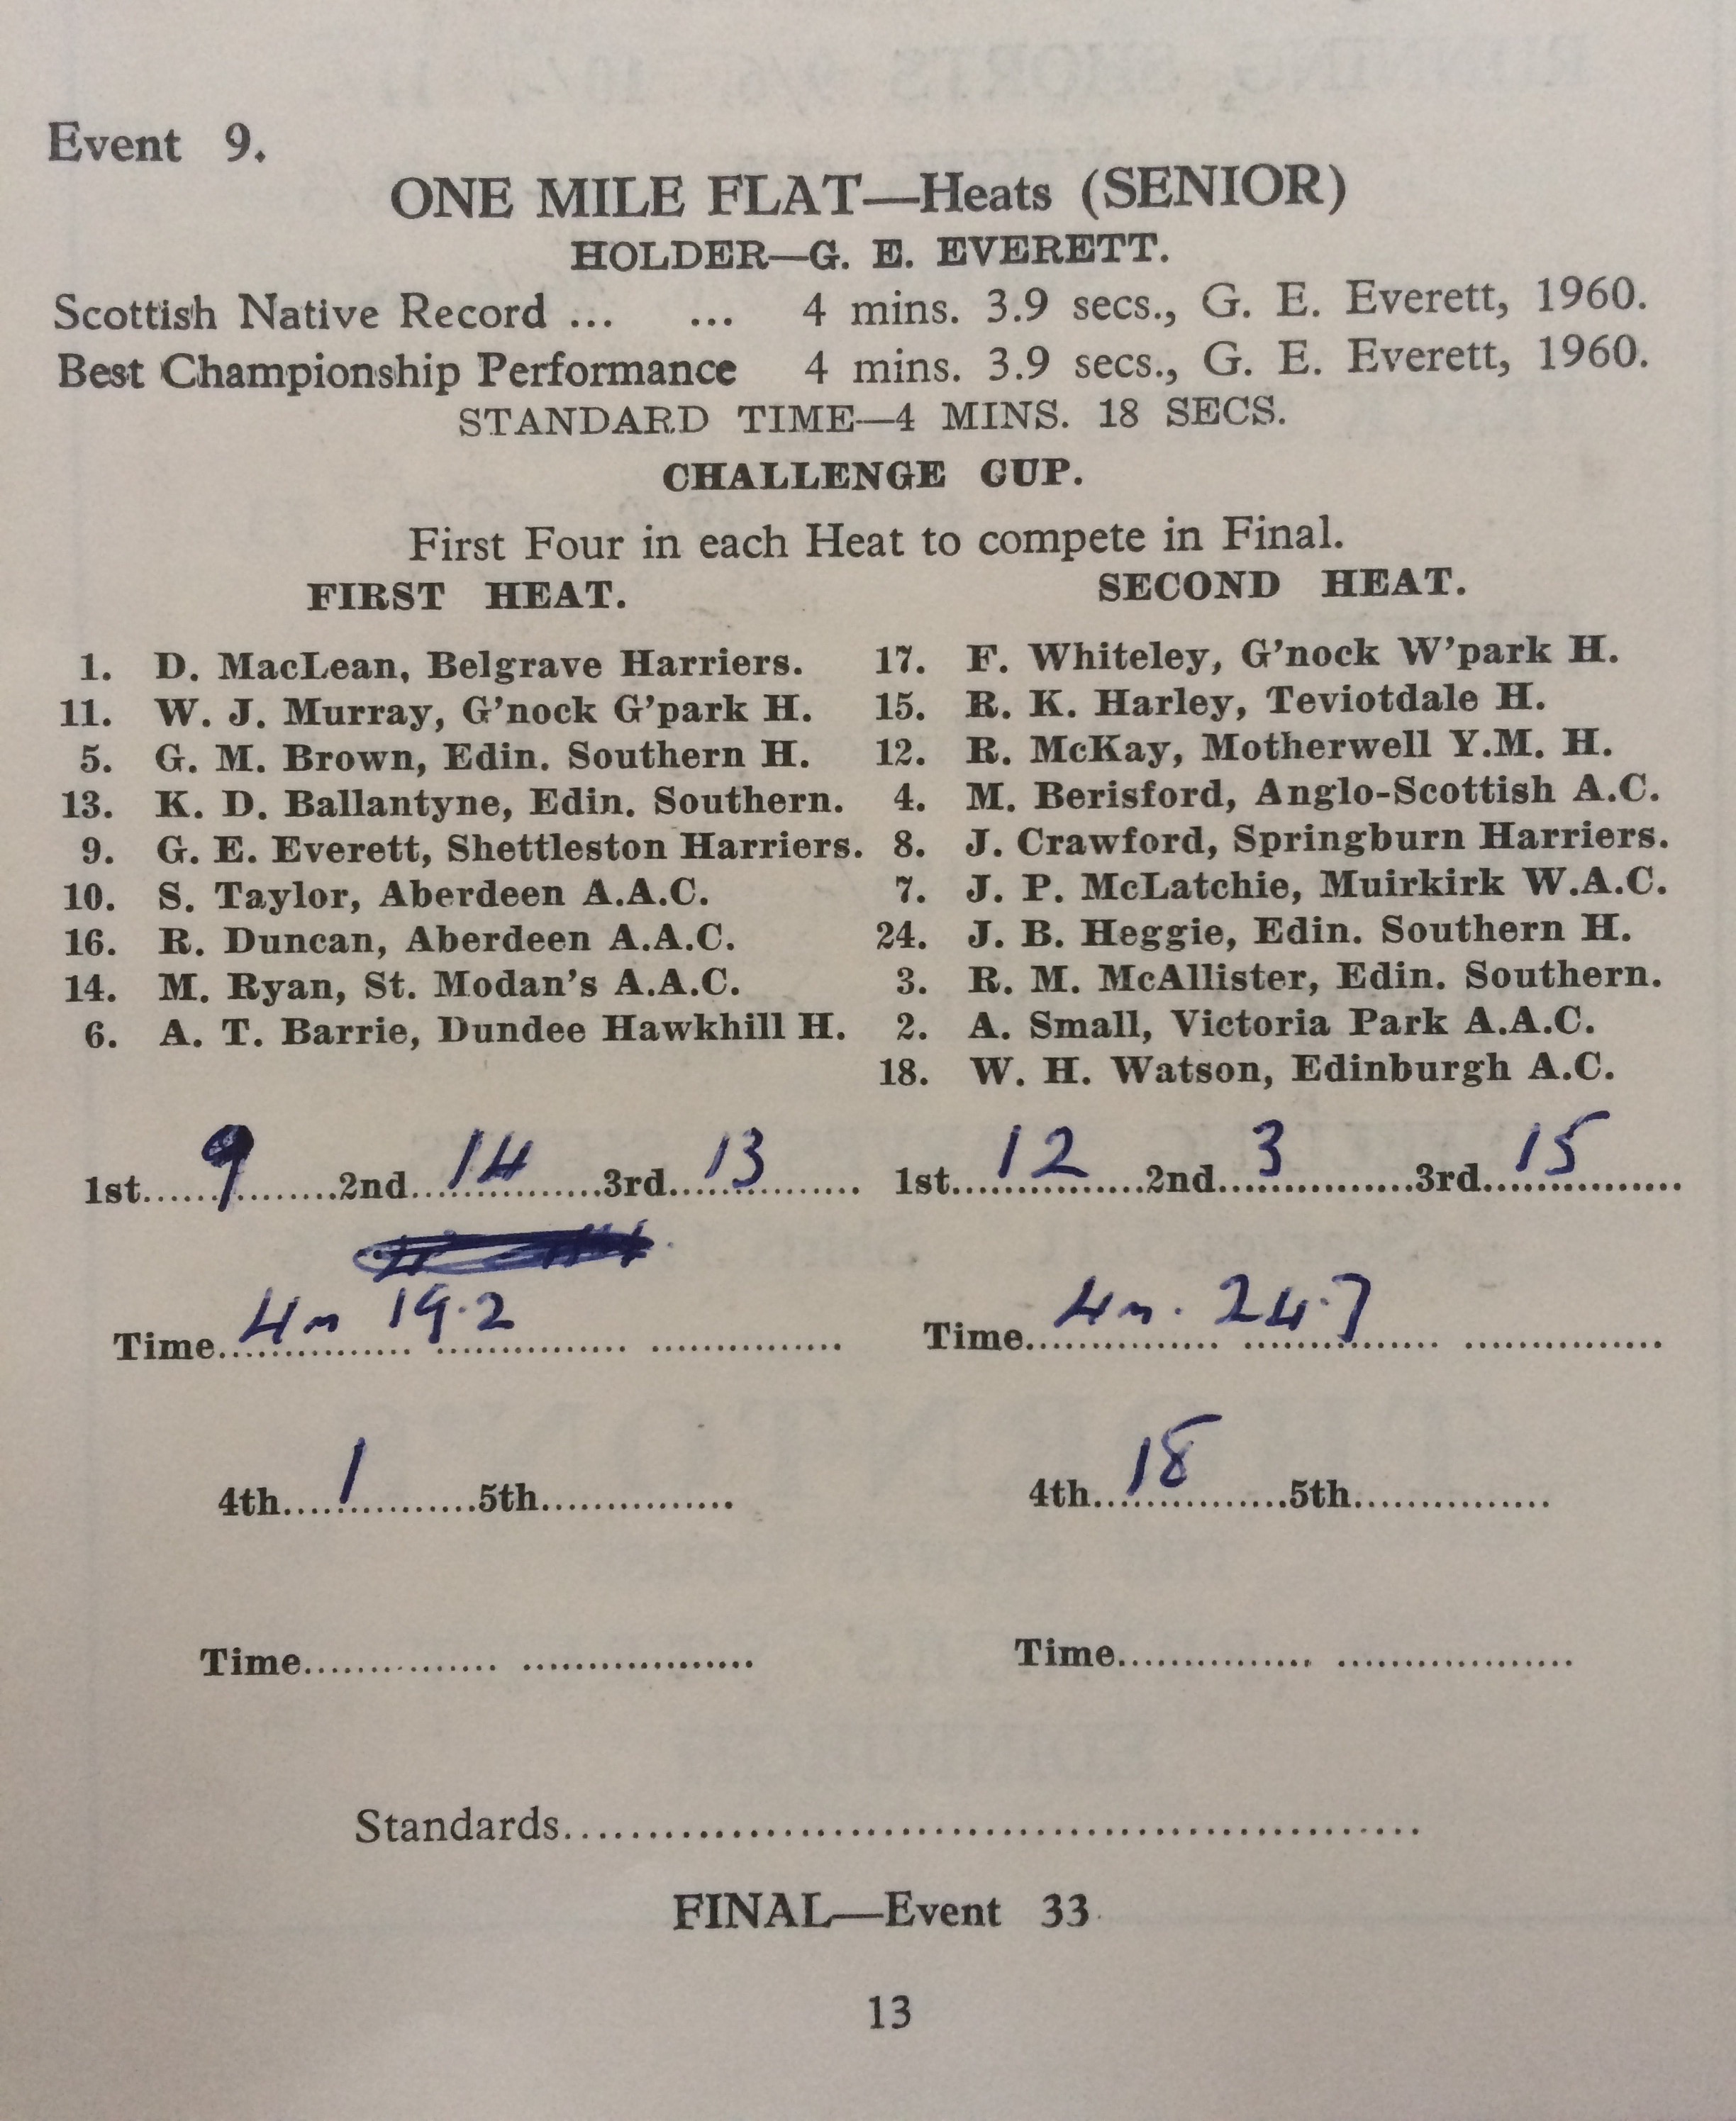 Event 9.
ONE MILE FLAT—Heats (SENIOR)
HOLDER—G. E. EVERETT.
Scottish Native Record ... ... 4 mins. 3.9 secs., G. E. Everett, 1960.
Best Championship Performance 4 mins. 3.9 secs., G. E. Everett, 1960.
STANDARD TIME—4 MINS. 18 SECS.
CHALLENGE CUP.
First Four in each Heat to compete in Final.
FIRST HEAT.
1. D. MacLean, Belgrave Harriers.
11. W. J. Murray, G'nock G'park H.
5. G. M. Brown, Edin. Southern H.
13. K. D. Ballantyne, Edin. Southern.
9. G. E. Everett, Shettleston Harriers.
10. S. Taylor, Aberdeen A.A.C.
16. R. Duncan, Aberdeen A.A.C.
14. M. Ryan, St. Modan's A.A.C.
6. A. T. Barrie, Dundee Hawkhill H.
1st 9 2nd 14 3rd 13
Time 4m 19.2
4th 1 5th
Time
SECOND HEAT.
17. F. Whiteley, G'nock W'park H.
15. R. K. Harley, Teviotdale H.
12. R. McKay, Motherwell Y.M. H.
4. M. Berisford, Anglo-Scottish A.C.
8. J. Crawford, Springburn Harriers.
7. J. P. McLatchie, Muirkirk W.A.C.
24. J. B. Heggie, Edin. Southern H.
3. R. M. McAllister, Edin. Southern.
2. A. Small, Victoria Park A.A.C.
18. W. H. Watson, Edinburgh A.C.
1st 12 2nd 3 3rd 15
Time 4m. 24.7
4th 18 5th
Time
Standards
FINAL—Event 33
13